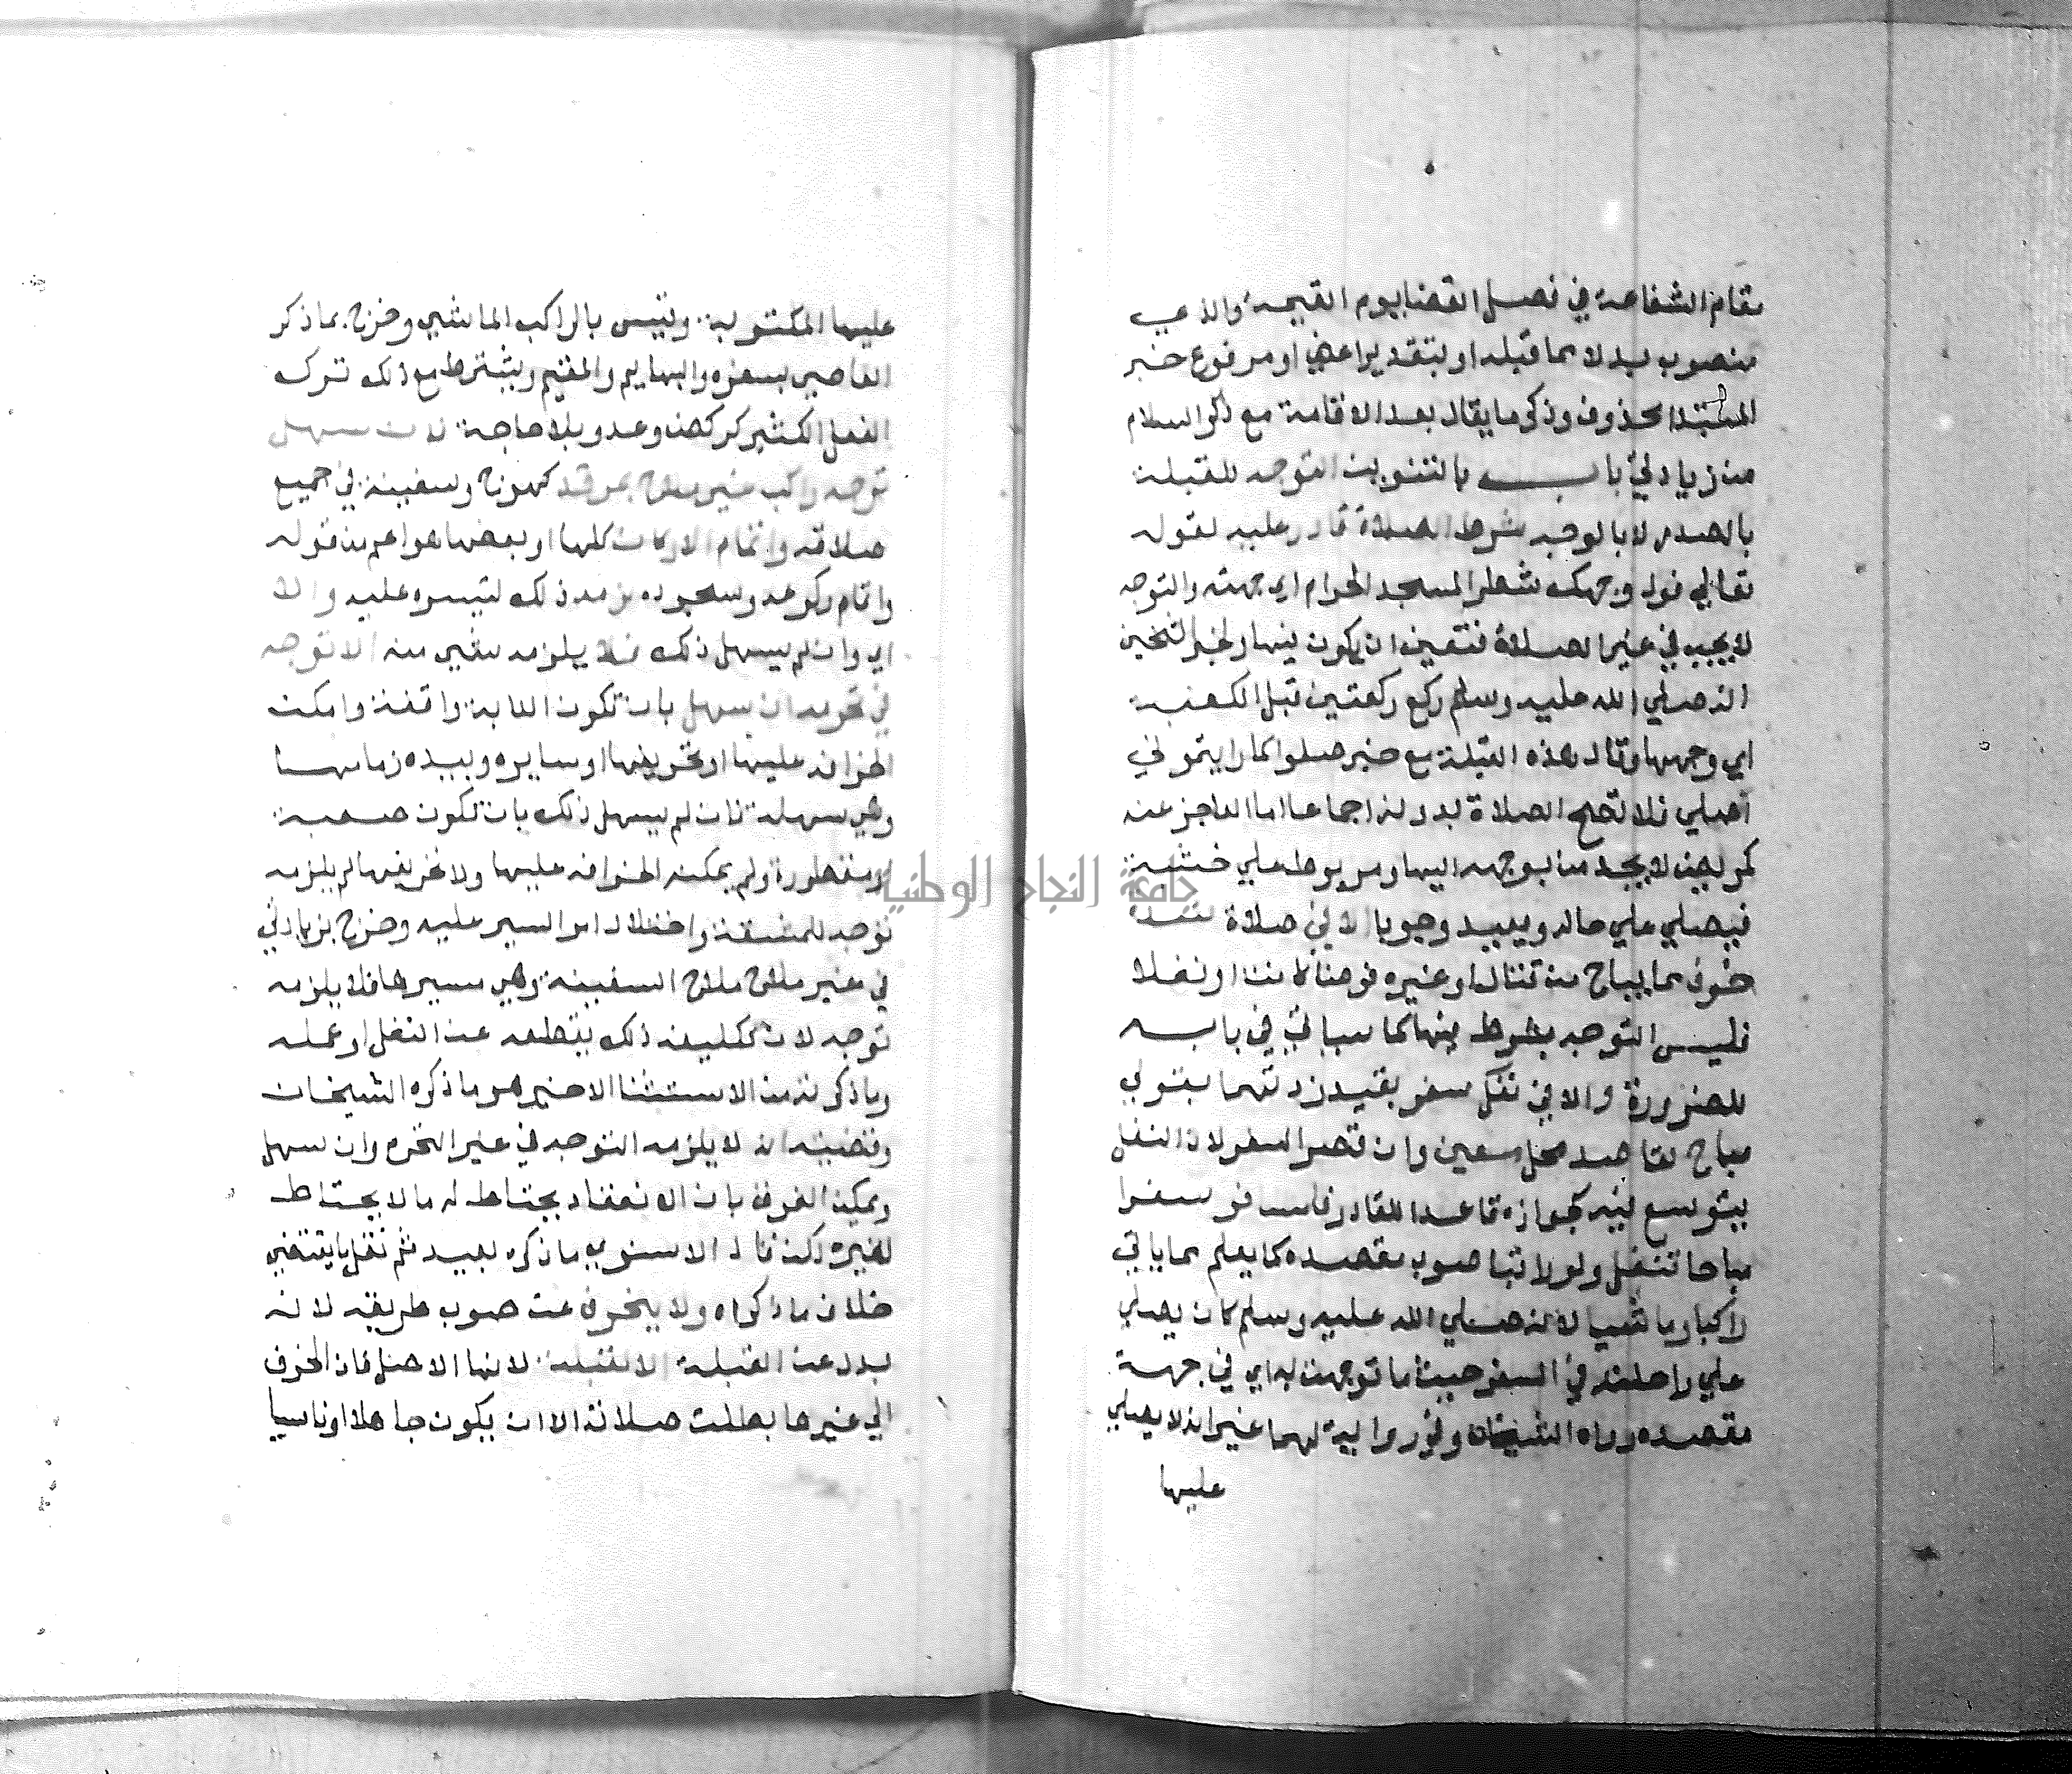 مقام الشفاعة في فصل القضا يوم القيمة والذي
منصوب بدلا مما قبله او بتقدير اعني او مرفوع خبر
المبتدا محذوف وذكر ما يقال بعد الاقامة مع ذكر السلام
من زيادتي باب بالتنوين التوجه للقبلة
بالصدر لا بالوجه شرط الصلاة قادر عليه لقوله
تعالي فول وجهك شطر المسجد الحرام اي جهته والتوجه
لا يجب في غير الصلاة فتعين ان يكون فيها ولخبر الشيخين
انه صلي الله عليه وسلم ركع ركعتين قبل الكعبة
اي وجهها وقال هذه القبلة مع خبر صلوا كما رايتموني
اصلي فلا تصح الصلاة بدونه اجماعا اما العاجز عنه
كمريض لا يجد من يوجهه اليها ومربوط علي خشبة
فيصلي علي حاله ويعيد وجوبا الا في صلاة شدة
خوف مما يباح من قتال او غيره فرضا كانت او نفلا
فليس التوجه بشرط فيها كما سياتي في بابه
للضرورة والا في نفل سفر بقيد زدتهما بقولي
مباح لقاصد محل معين وان قصر السفر لان النفل
يتوسع فيه كجوازه قاعدا للقادر فلمسافر سفرا
مباحا تنفل ولو راتبا صوب مقصده كما يعلم مما ياتي
راكبا وماشيا لانه صلي الله عليه وسلم كان يصلي
علي راحلته في السفر حيث ما توجهت به اي في جهة
مقصده رواه الشيخان وفي رواية لهما غير انه لا يصلي
عليها
عليها المكتوبة وقيس بالراكب الماشي وخرج بما ذكر
العاصي بسفره والهايم والمقيم ويشترط مع ذلك ترك
الفعل الكثير كركض وعدو بلا حاجة فان سهل
توجه راكب غير ملاح بمرقد كهودج وسفينة في جميع
صلاته واتمام الاركان كلها او بعضها هو اعم من قوله
واتمام ركوعه وسجوده لزمه ذلك لتيسره عليه والا
اي وان لم يسهل ذلك فلا يلزمه شي منه الا توجه
في تحرمه ان سهل بان تكون الدابة واقفة وامكن
انحرافه عليها او تحريفها او سايره وبيده زمامها
وهي سهلة فان لم يسهل ذلك بان تكون صعبة
او مقطورة ولم يمكنه انحرافه عليها ولا تحريفها لم يلزمه
توجه للمشقة واختلال امر السير عليه وخرج بزيادتي
في غير ملاح ملاح السفينة وهي مسيرها فلا يلزمه
توجه لان تكليفه ذلك يقطعه عن النفل او عمله
وما ذكرته من الاستثنا الاخير هو ما ذكره الشيخان
وقضيته انه لا يلزمه التوجه في غير التحرم وان سهل
ويمكن الفرق بان الانعقاد يحتاط له ما لا يحتاط
لغيره لكن قال الاسنوي ما ذكره بعيد ثم نقل ما يقتضي
خلاف ما ذكراه ولا ينحرف عن صوب طريقه لانه
بدل عن القبلة الا لقبلة لانها الاصل فان انحرف
الي غيرها بطلت صلاته الا ان يكون جاهلا او ناسيا
جامعة النجاح الوطنية